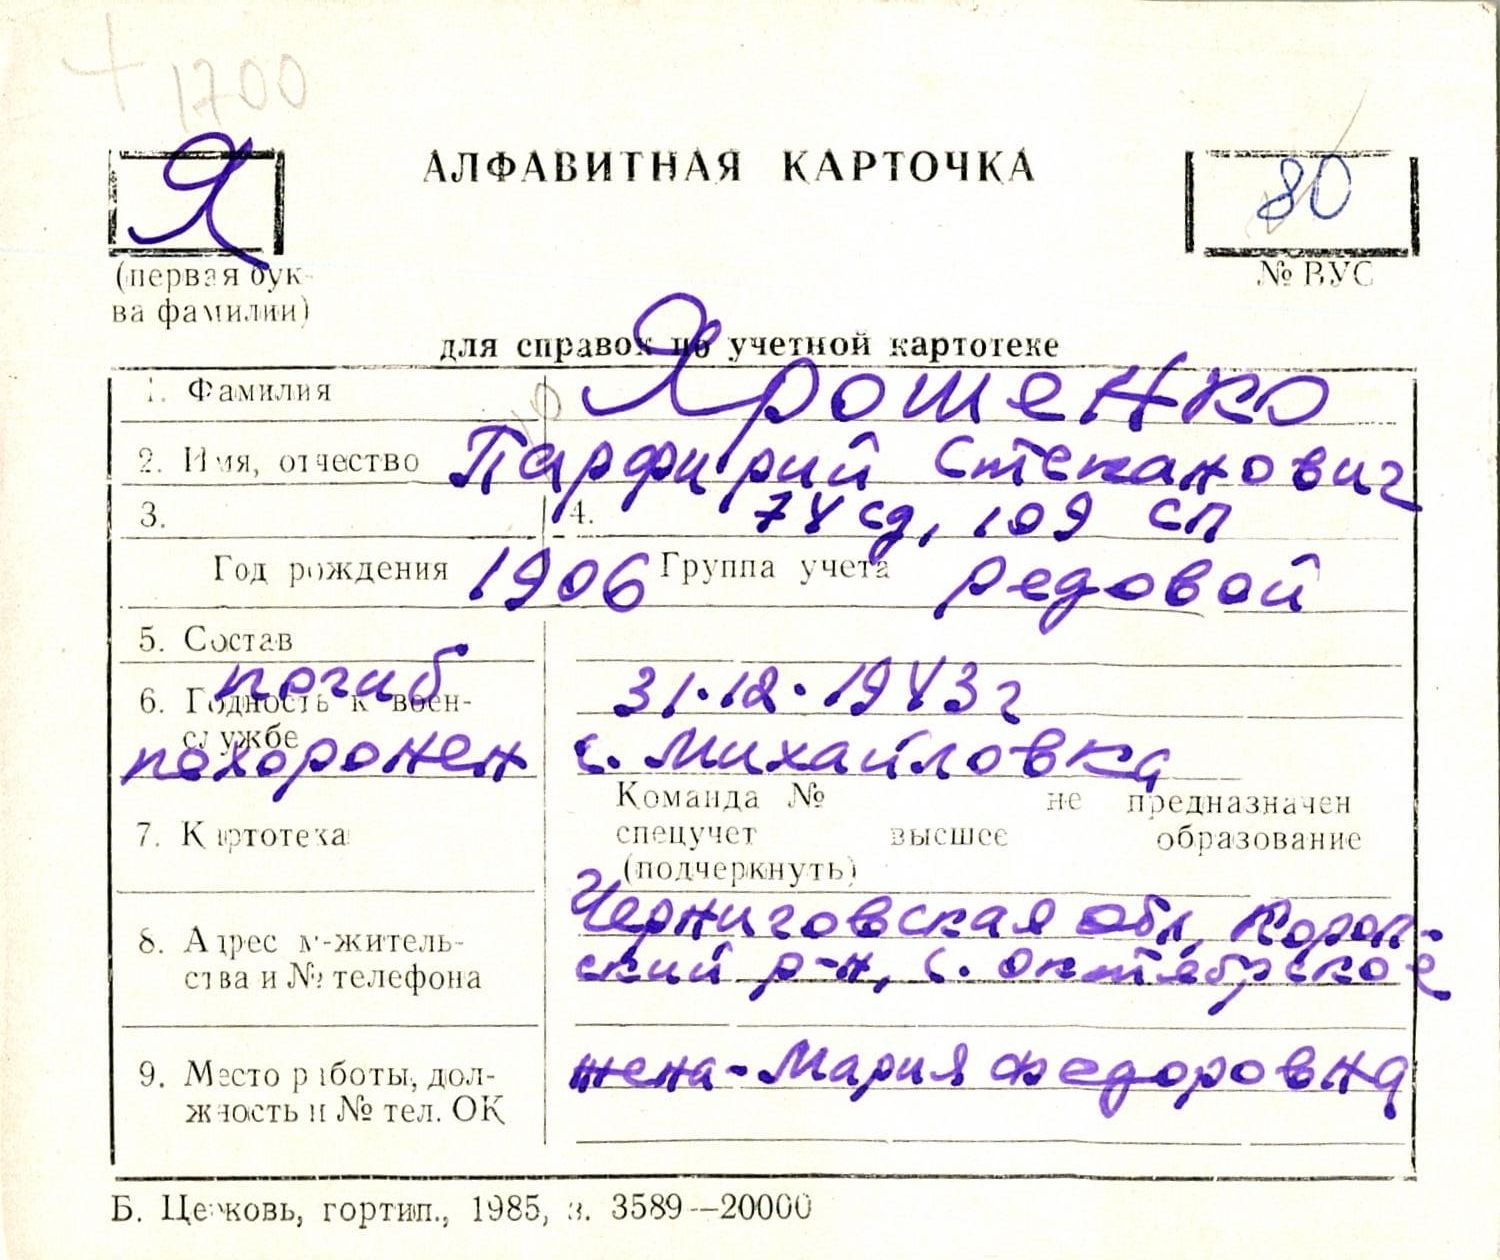 1700
Я
АЛФАВИТНАЯ КАРТОЧКА
80
(первая бук-
ва фамилии)
№ ВУС
для справок по учетной картотеке
1. Фамилия Ярошенко
2. Имя, отчество Парфирий Степанович
3. 4. 74 сд, 109 сп
Год рождения 1906 Группа учета редовой
5. Состав
погиб 31.12.1943 г
6. Годность к воен-
службе
похоронен с. Михайловка
Команда № не предназначен
7. Картотека спецучет высшее образование
(подчеркнуть)
Черниговская обл, Короп-
8. Адрес м-житель- ский р-н, с. Октябрское
ства и № телефона
9. Место работы, дол- жена - Мария Федоровна
жность и № тел. ОК
Б. Церковь, гортип., 1985, з. 3589—20000